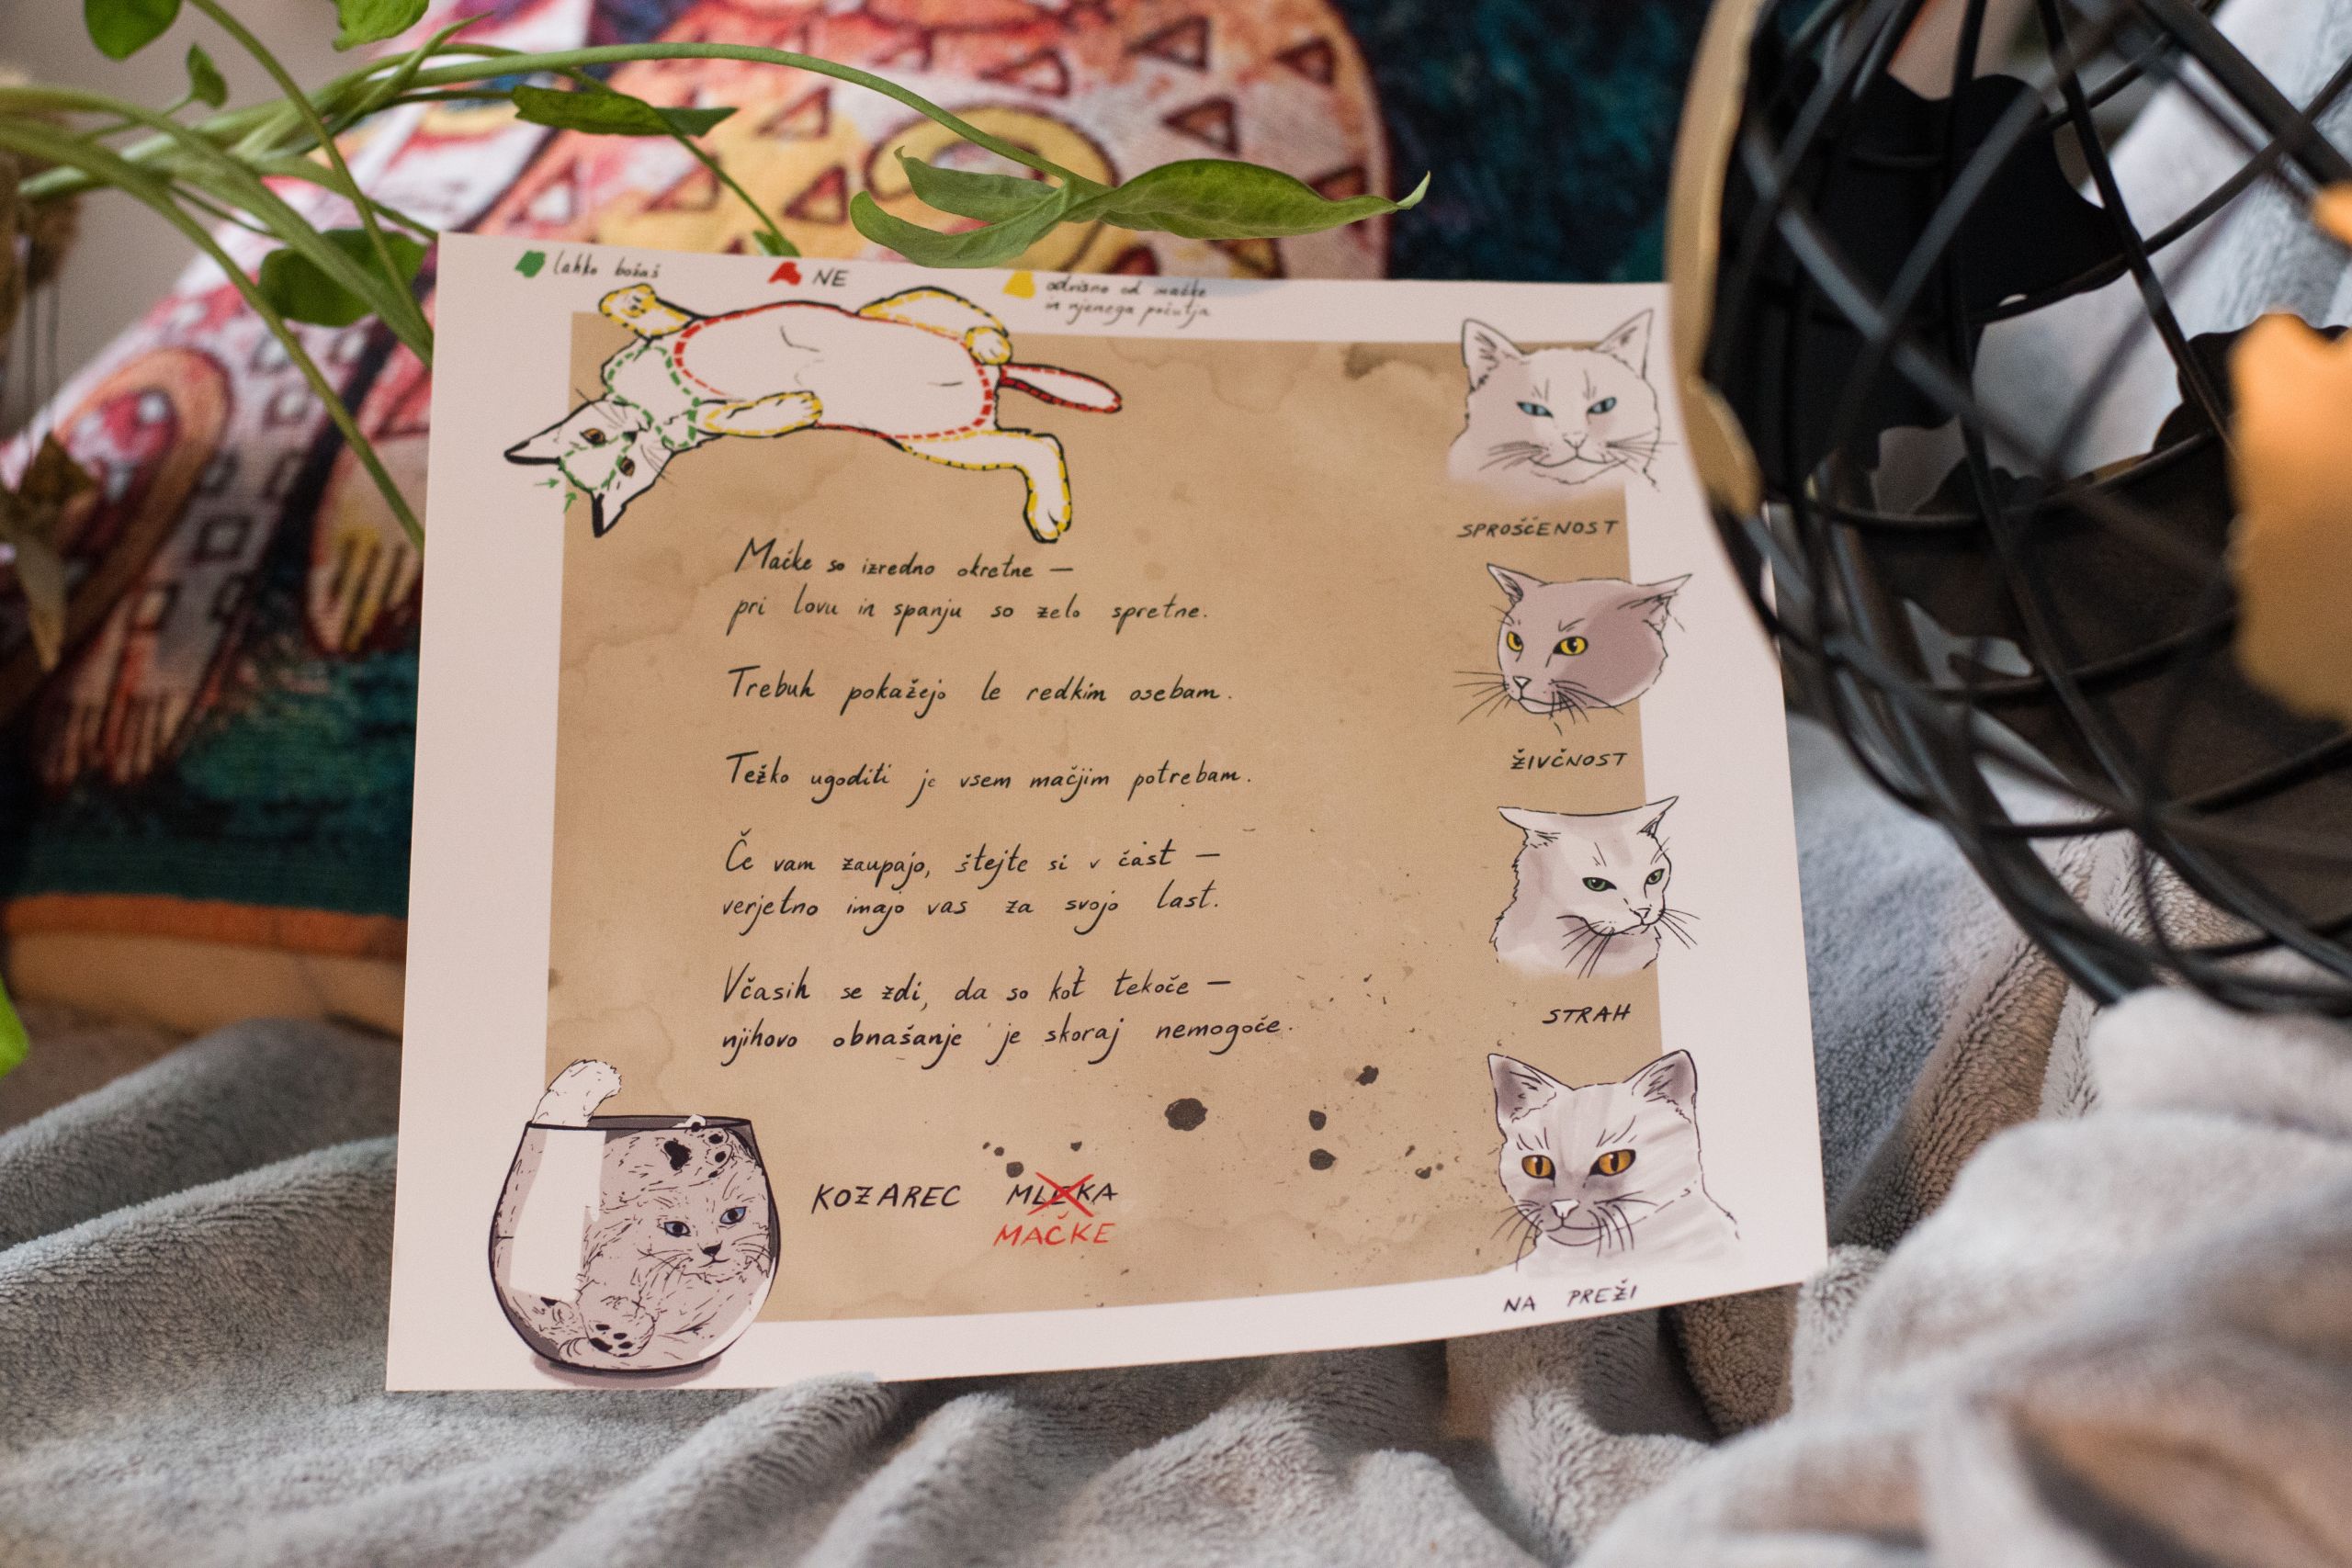 lahko božaš
NE
odvisno od mačke
in njenega počutja
Mačke so izredno okretne —
pri lovu in spanju so zelo spretne.
Trebuh pokažejo le redkim osebam.
Težko ugoditi je vsem mačjim potrebam.
Če vam zaupajo, štejte si v čast —
verjetno imajo vas za svojo last.
Včasih se zdi, da so kot tekoče —
njihovo obnašanje je skoraj nemogoče.
KOZAREC MLEKA
MAČKE
SPROŠČENOST
ŽIVČNOST
STRAH
NA PREŽI